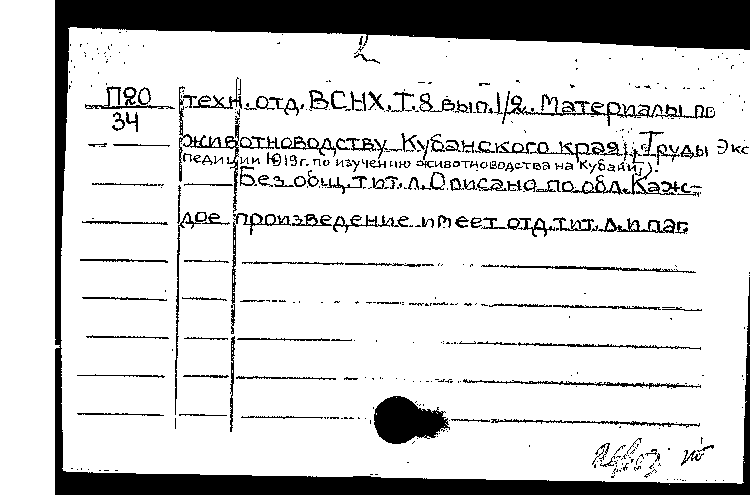 2
П20 техн. отд. ВСНХ. Т. 8 вып. 1/2. Материалы по
34
животноводству Кубанского края), Труды Экс
педиции 1919 г. по изучению животноводства на Кубани I).
Без общ. тит. л. Описано по обл. Каж-
дое произведение имеет отд. тит. л. и паг